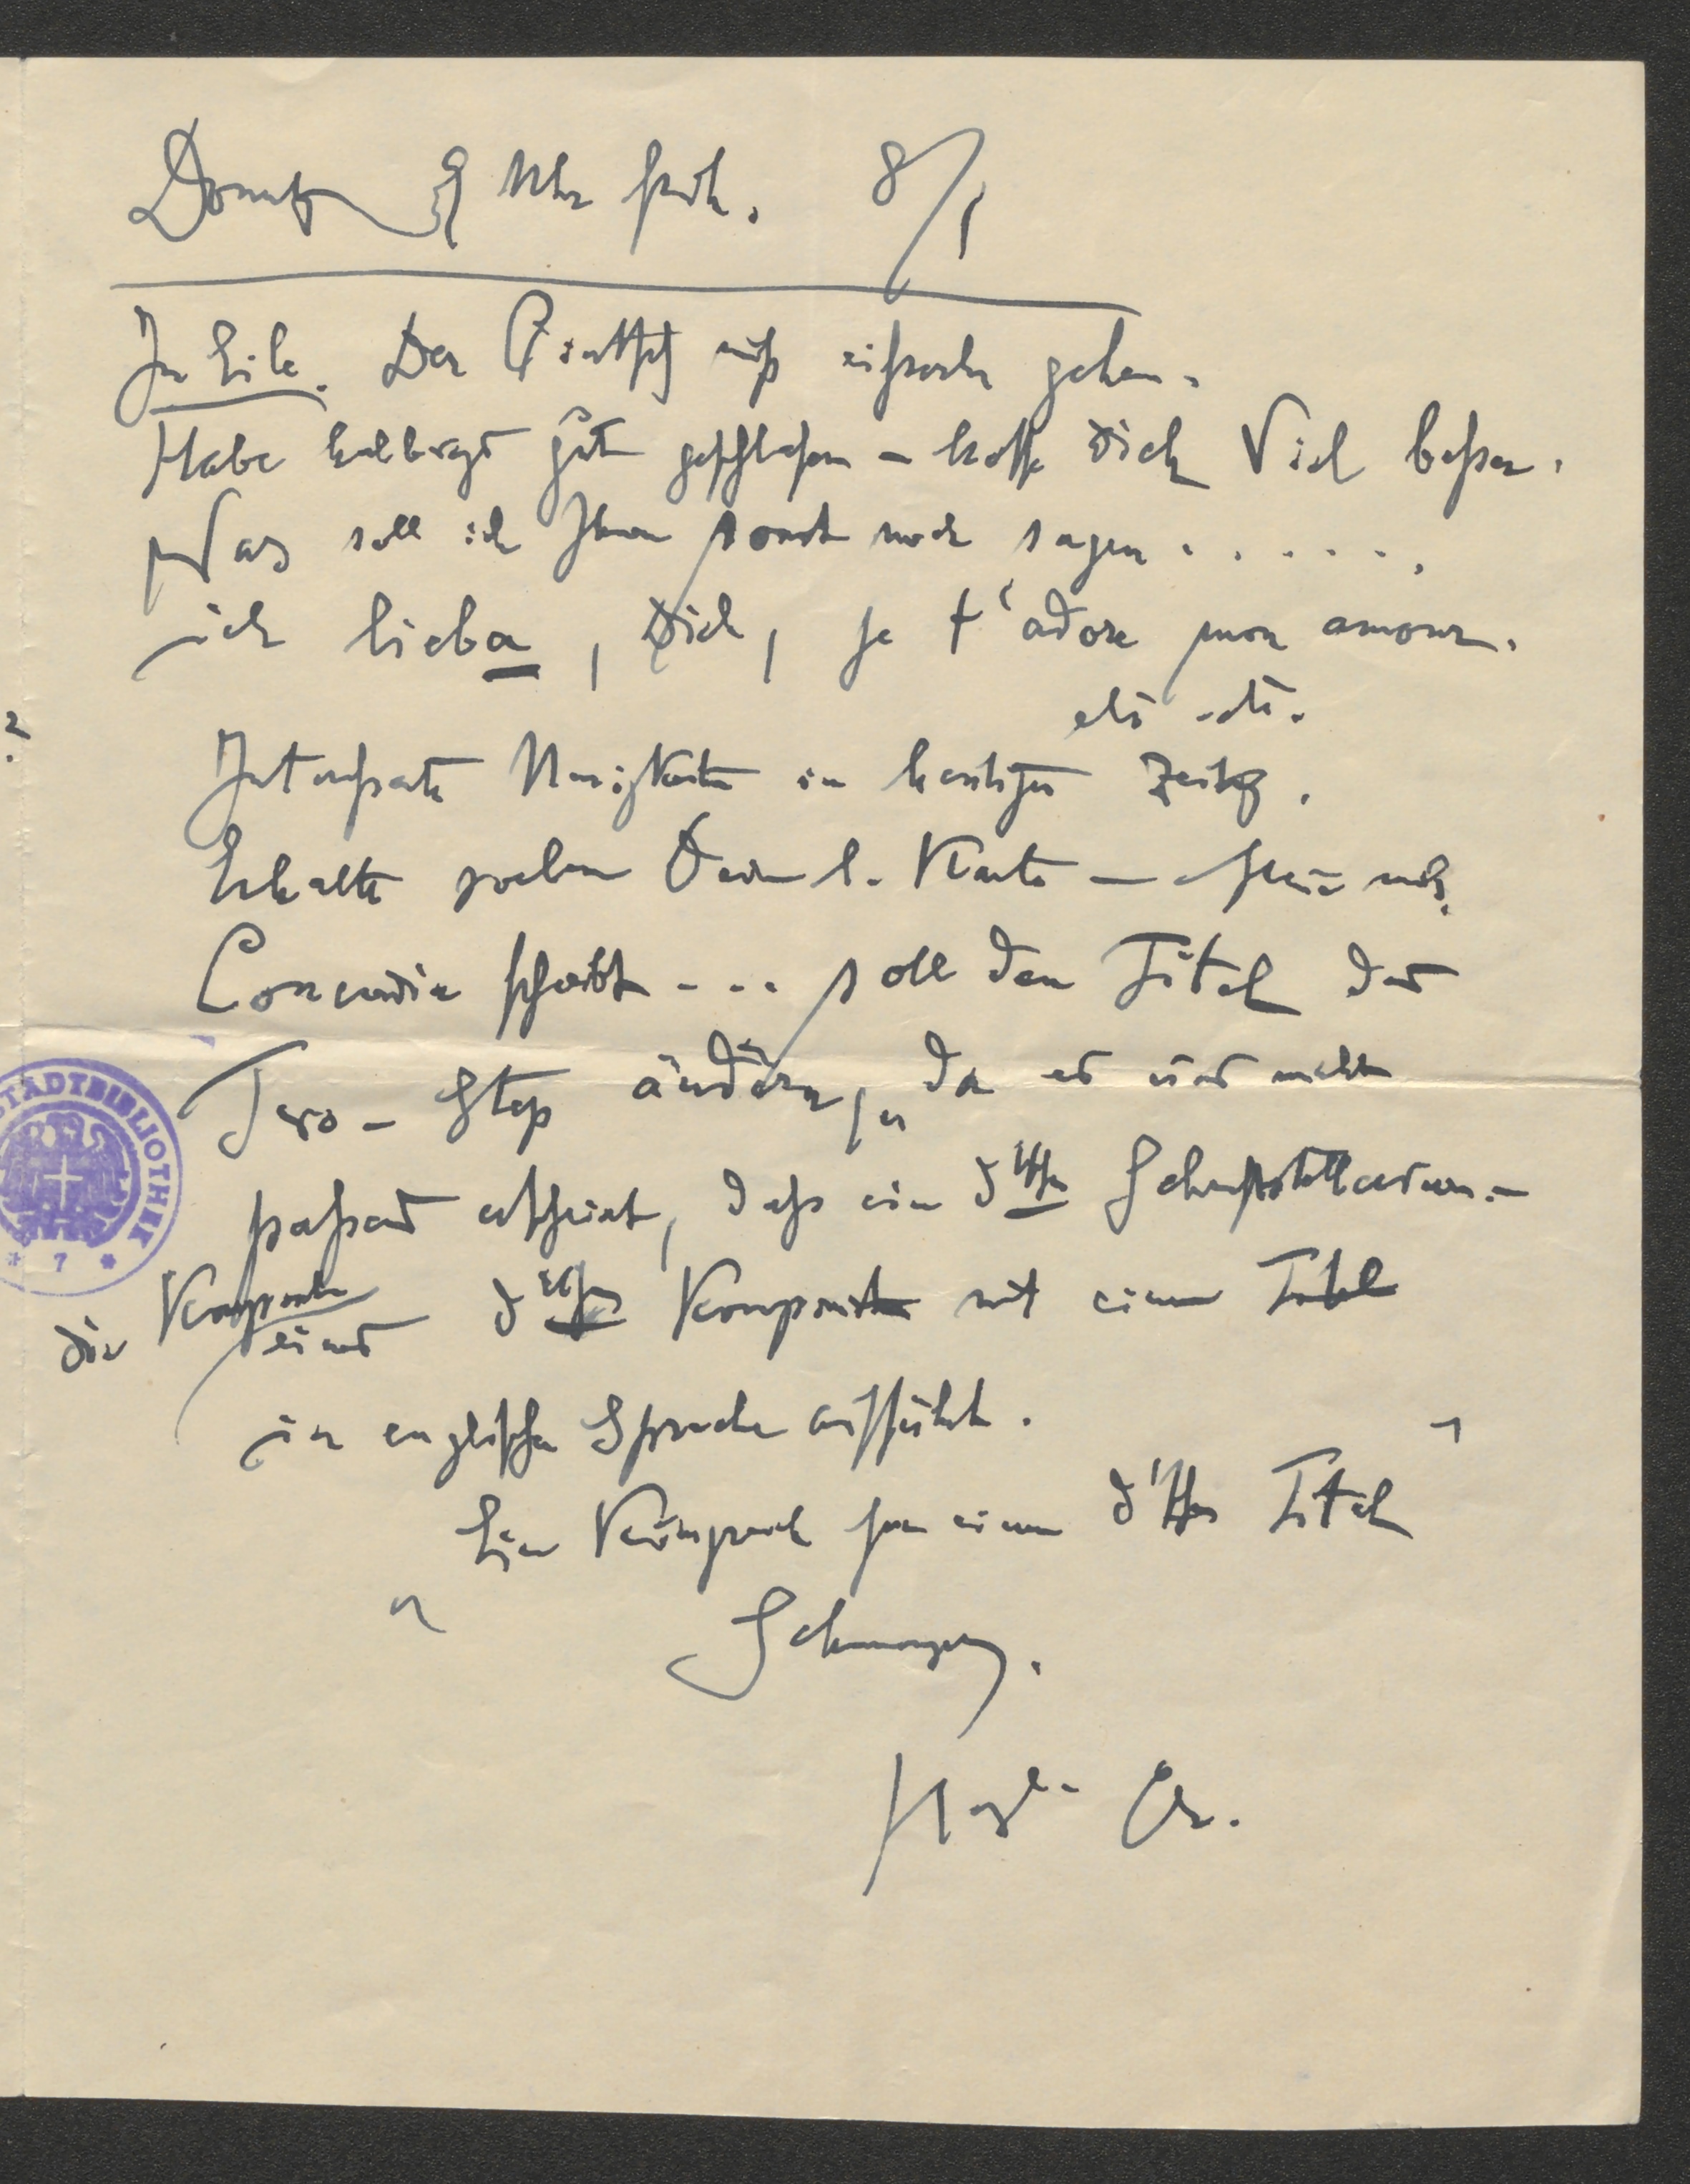 Donnstg 9 Uhr früh. 8/1
In Eile. Der Quatsch muß einstweilen gehen.
Habe halbwegs gut geschlafen – hoffe Dich Viel beßer.
Was soll ich Ihnen sonst noch sagen . . . . . .
ich liebe, Dich, je t'adore mon amour.
etc. etc.
Interessante Neuigkeiten in heutiger Zeitg.
Erhalte soeben Deine l. Karte –
Concordia schreibt - - - soll den Titel des
Two-Step ändern, „da es uns nicht
passend erscheint, dass ein dtscher Schriftstellerverein
die Komposition
eines dtschen Komponisten mit einem Titel
in englischer Sprache aufführt.
Ein Königreich für einen dtschen Titel"
STADTBIBLIOTHEK
* 7 *